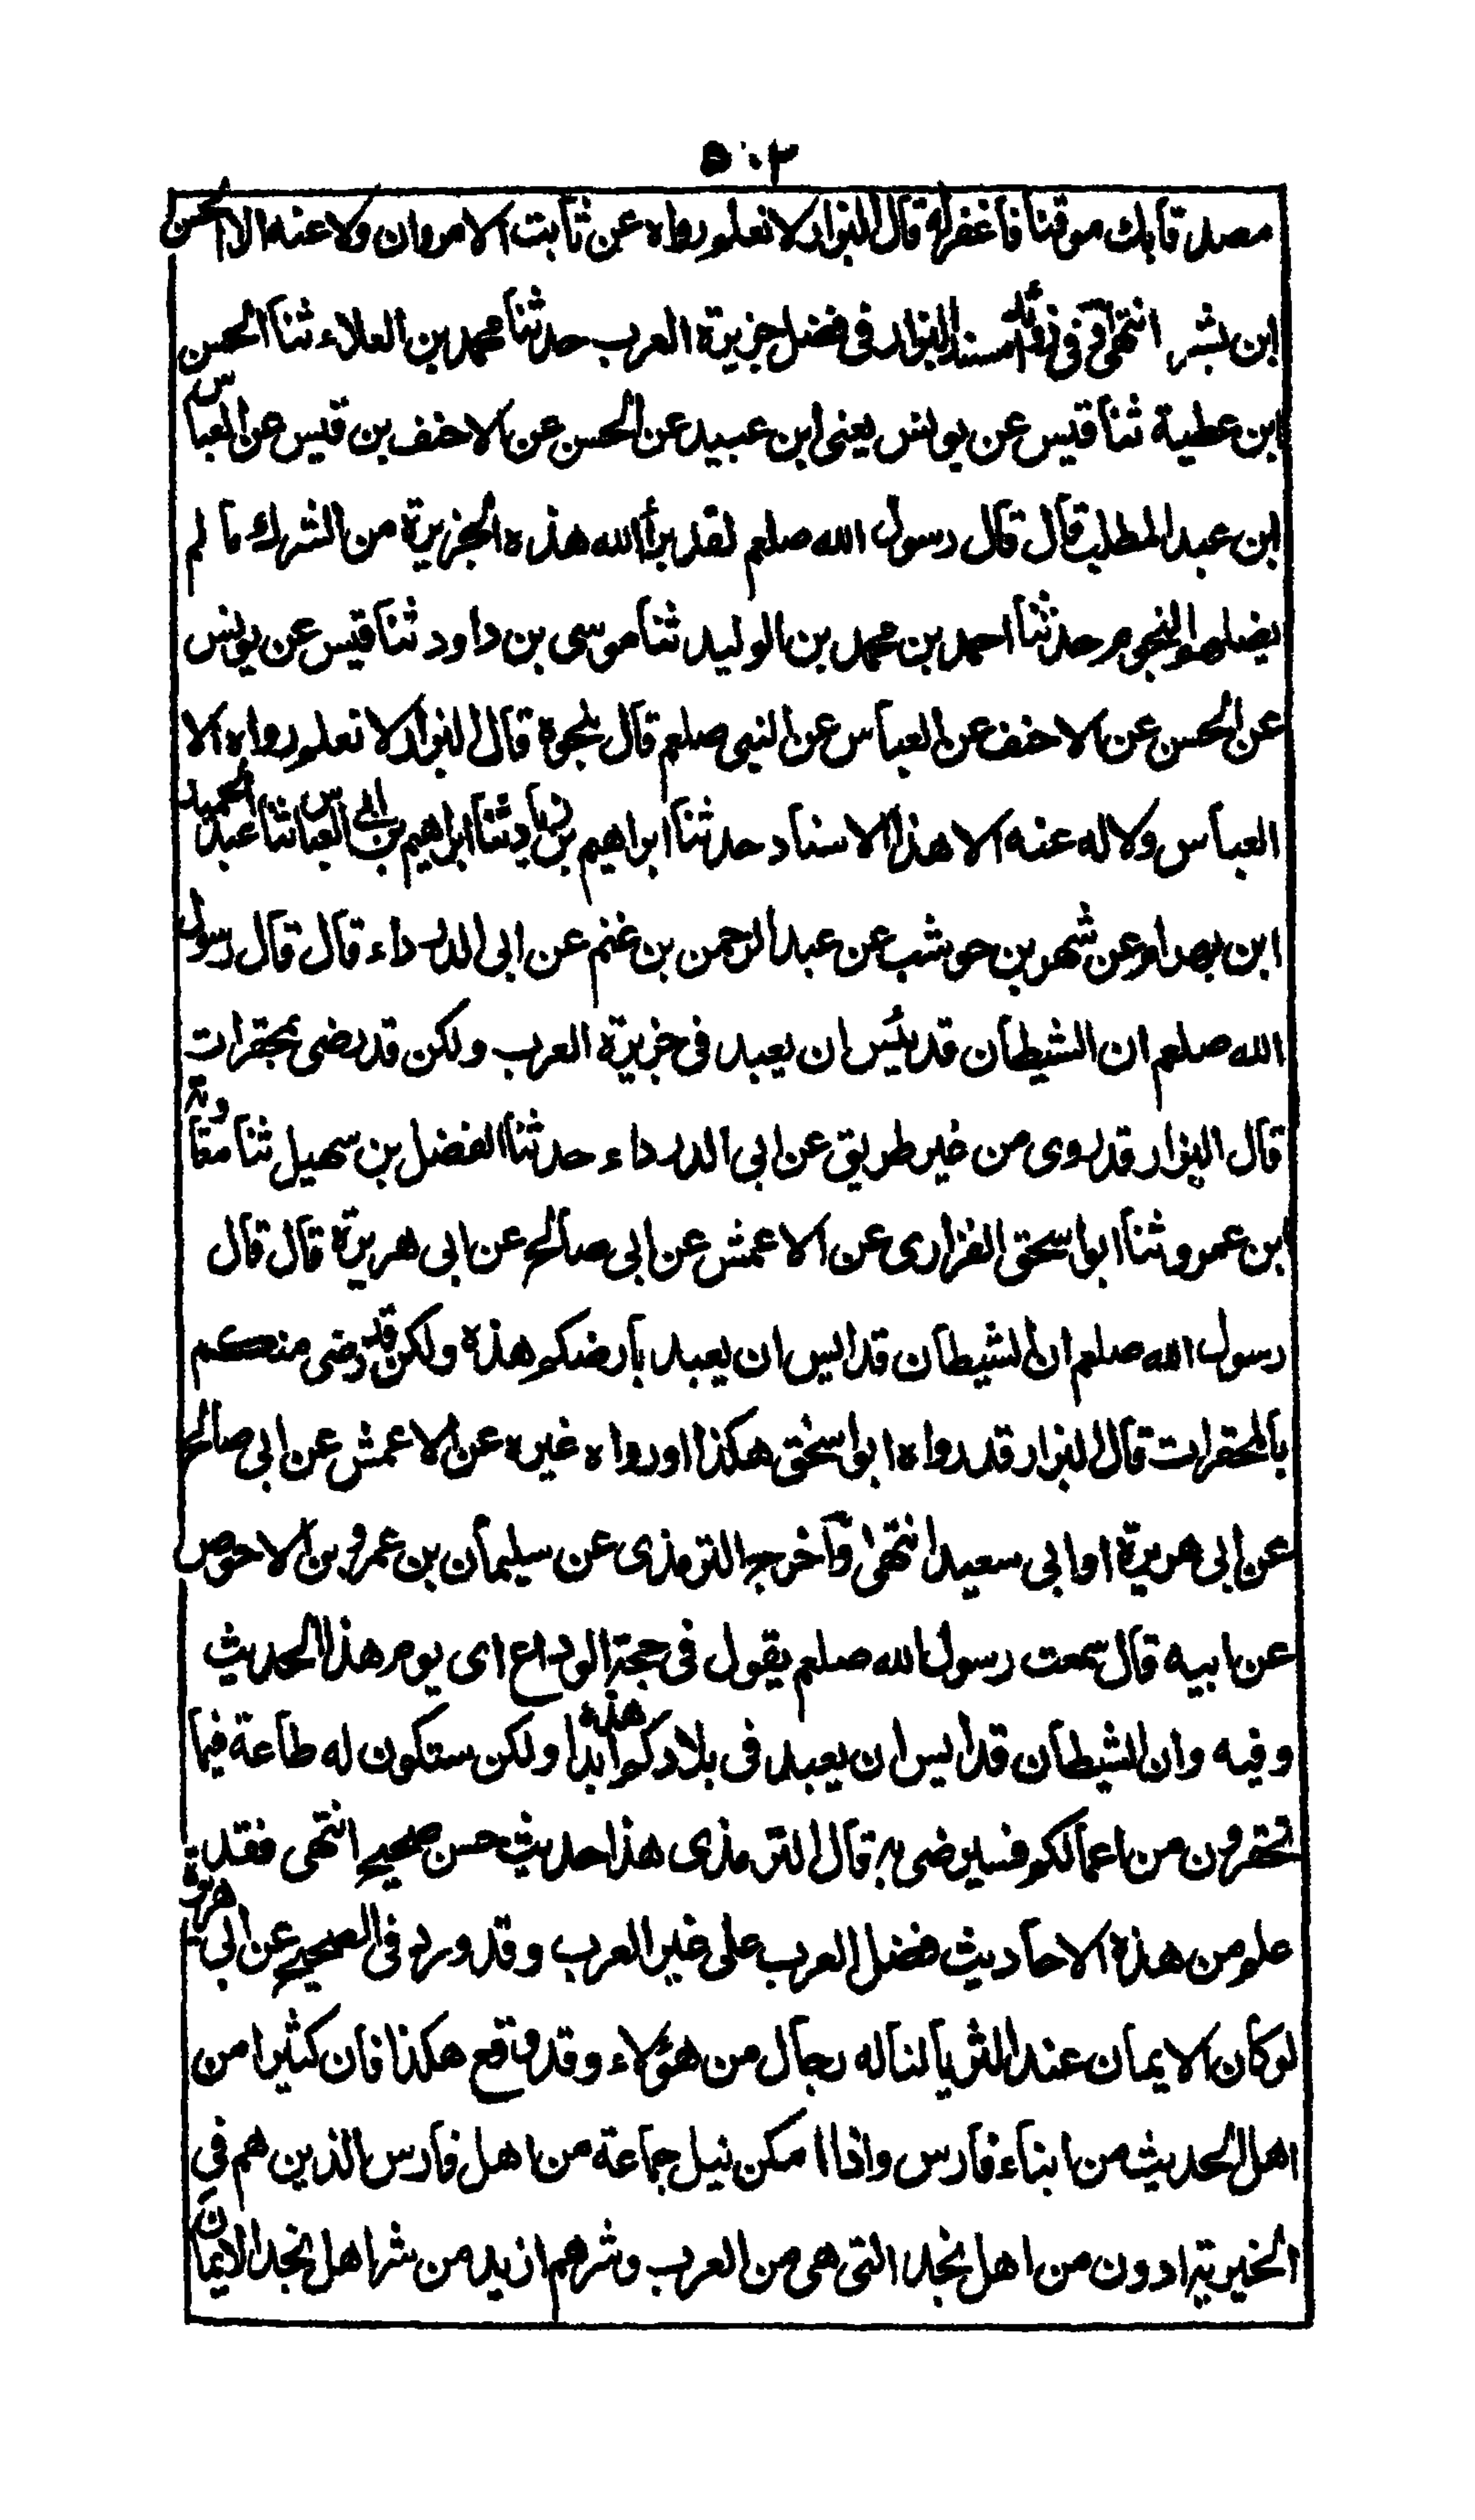 ٥٠٣
مصدقا بك موقنا فاغفر له قال البزار لا نعلم رواه عن ثابت الا مروان ولا عنه الا الحسن
ابن بشر انتهى وفي زوائد مسند البزار في فضل جزيرة العرب حدثنا محمد بن العلاء ثنا الحسن
ابن عطية ثنا قيس عن يونس يعني ابن عبيد عن الحسن عن الاحنف بن قيس عن العباس
ابن عبد المطلب قال قال رسول الله صلعم لقد برأ الله هذه الجزيرة من الشرك ما لم
يضلهم النجوم حدثنا احمد بن محمد بن الوليد ثنا موسى بن داود ثنا قيس عن يونس
عن الحسن عن الاحنف عن العباس عن النبي صلعم قال نحوه قال البزار لا نعلم رواه الا
العباس ولا له عنه الا هذا الاسناد حدثنا ابراهيم بن زياد ثنا ابراهيم بن ابي العباس ثنا عبد الحميد
ابن بهرام عن شهر بن حوشب عن عبد الرحمن بن غنم عن ابي الدرداء قال قال رسول
الله صلعم ان الشيطان قد يئس ان يعبد في جزيرة العرب ولكن قد رضى بمحقرات
قال البزار قد روى من غير طريق عن ابي الدرداء حدثنا الفضل بن سهيل ثنا معٰوية
ابن عمرو ثنا ابو اسحق الفزارى عن الاعمش عن ابي صالح عن ابي هريرة قال قال
رسول الله صلعم ان الشيطان قد ايس ان يعبد بأرضكم هذه ولكن قد رضى منكم
بالمحقرات قال البزار قد رواه ابو اسحق هكذا ورواه غيره عن الاعمش عن ابي صالح
عن ابي هريرة او ابي سعيد انتهى وأخرج الترمذى عن سليمان بن عمرو بن الاحوص
عن ابيه قال سمعت رسول الله صلعم يقول في حجة الوداع اى يوم هذا الحديث
وفيه وان الشيطان قد ايس ان يعبد في بلادكم هذه ابدا ولكن ستكون له طاعة فيما
تحتقرون من اعمالكم فسيرضى به قال الترمذى هذا حديث حسن صحيح انتهى فقد
علم من هذه الاحاديث فضل العرب على غير العرب وقد ورد في الصحيح عن ابي هريرة
لو كان الايمان عند الثريا لناله رجال من هؤلاء وقد وقع هكذا فان كثيرا من
اهل الحديث من ابناء فارس واذا امكن نيل جماعة من اهل فارس الذين هم في
الخيرية ادون من اهل نجد التى هى من العرب وشرهم ازيد من شر اهل نجد الايمان